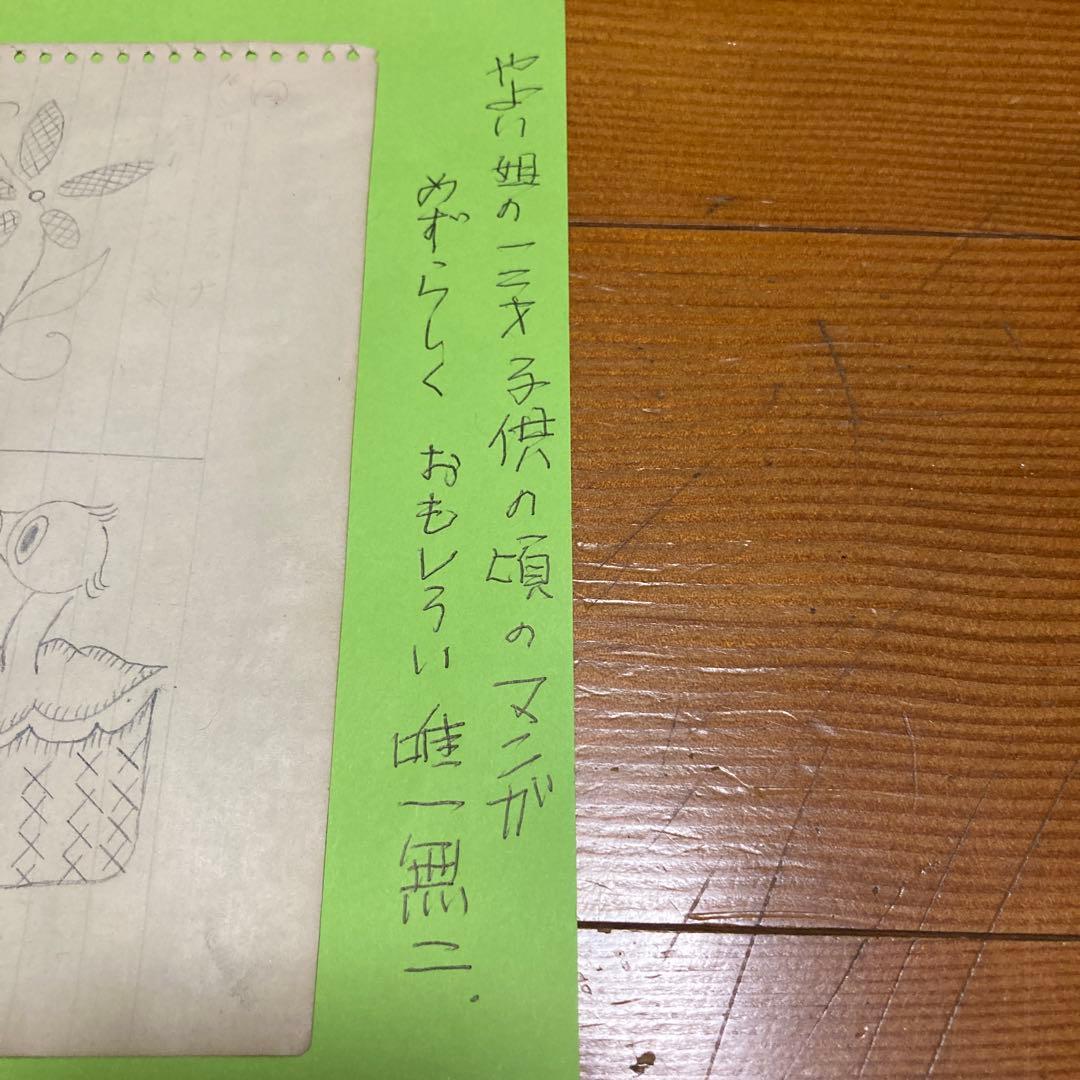 やよい姐の一二才子供の頃のマンガ
めずらしく おもしろい 唯一無二.